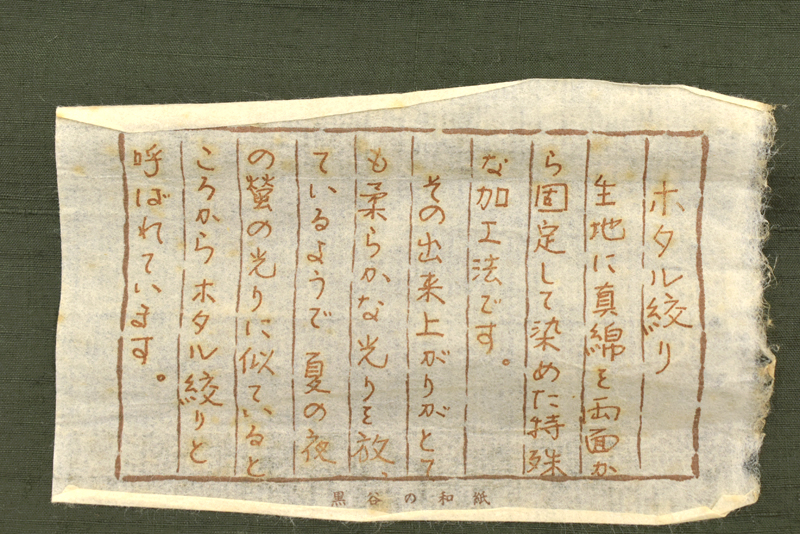 ホタル絞り
生地に真綿を両面か
ら固定して染めた特殊
な加工法です。
その出来上がりがとて
も柔らかな光りを放っ
ているようで夏の夜
の螢の光りに似ていると
ころからホタル絞りと
呼ばれています。
黒谷の和紙